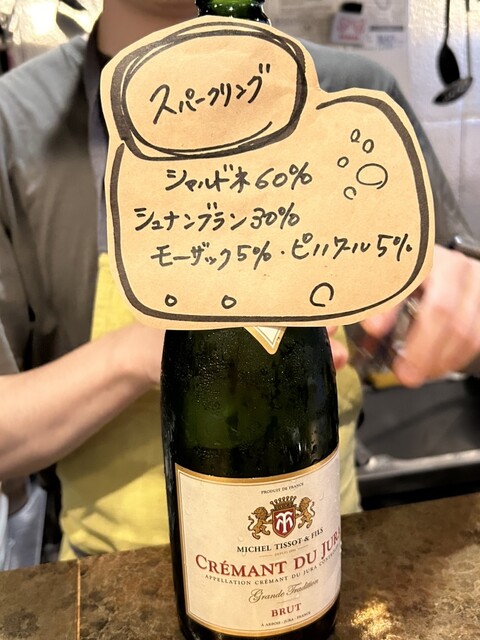 スパークリング
シャルドネ60%
シュナンブラン30%
モーザック5%・ピノノワール5%
PRODUIT DE FRANCE
MICHEL TISSOT & FILS
CRÉMANT DU JURA
APPELLATION CRÉMANT DU JURA
Grande Tradition
BRUT